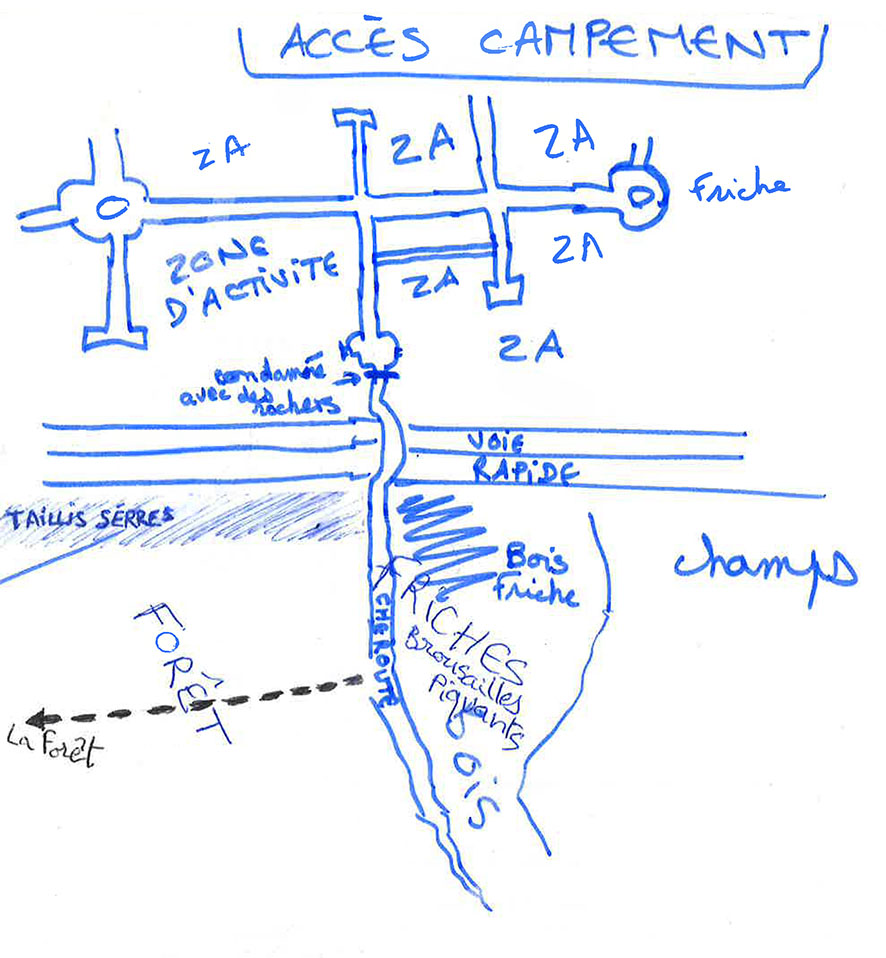 ACCÈS CAMPEMENT
ZA
ZA
ZA
Friche
ZONE
D'ACTIVITE
ZA
ZA
ZA
condamné
avec des
rochers
VOIE
RAPIDE
TAILLIS SERRES
Bois
Friche
champs
FRICHES
Brousailles
Piquants
ROUTE
FORÊT
La Forêt
Bois